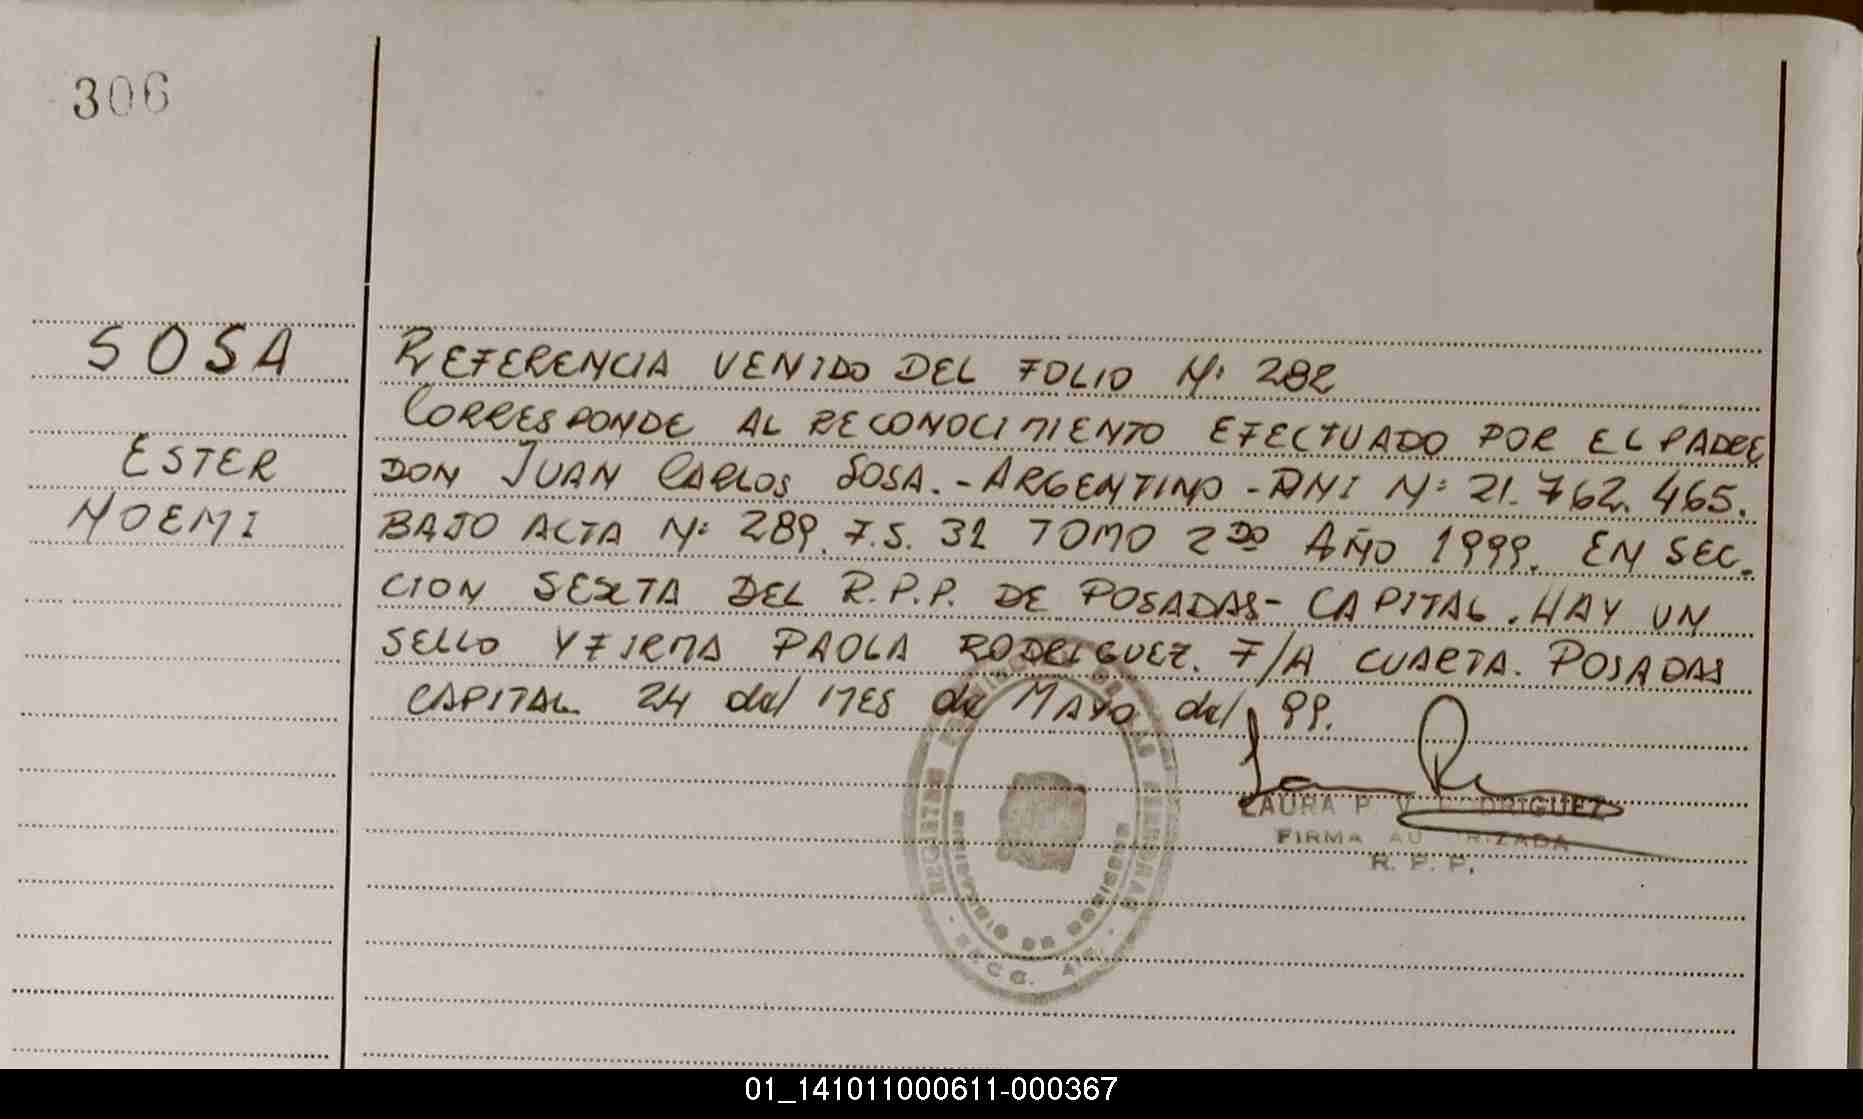 306
SOSA
ESTER
NOEMI
REFERENCIA VENIDO DEL FOLIO Nº 282
CORRESPONDE AL RECONOCIMIENTO EFECTUADO POR EL PADRE
DON JUAN CARLOS SOSA.-ARGENTINO-DNI Nº 21.762.465.
BAJO ACTA Nº 289. F.S. 32 TOMO 2DO AÑO 1999. EN SEC.
CION SEXTA DEL R.P.P. DE POSADAS-CAPITAL. HAY UN
SELLO Y FIRMA PAOLA RODRIGUEZ. F/A CUARTA. POSADAS
CAPITAL 24 del MES de MAYO del 99.
LAURA P. V. RODRIGUEZ
FIRMA AUTORIZADA
R. P. P.
01_141011000611-000367